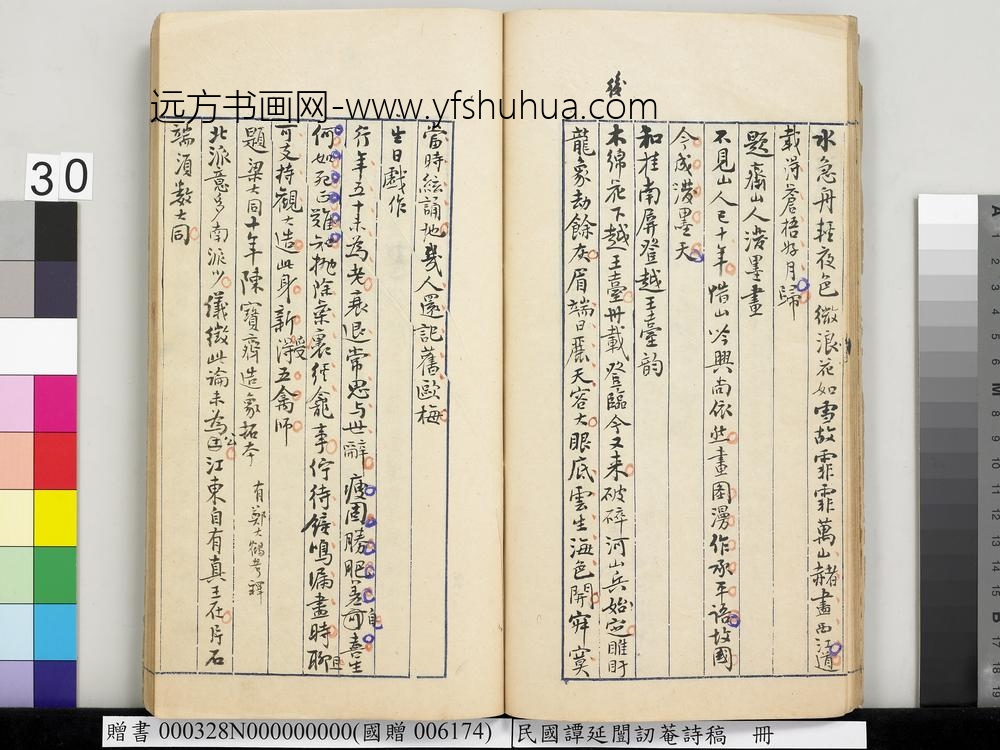 後
水急舟輕夜色微浪花如雪故霏霏萬山赭盡西江道
載得蒼梧好月歸
題齋山人潑墨畫
不見山人已十年惜山吟興尚依然畫圖漫作承平語故國
今成潑墨天
和桂南屏登越王臺韵
木綿花下越王臺舟載登臨今又來破碎河山兵始定睢盱
龍象劫餘灰眉端日麗天容大眼底雲生海色開寂寞
當時絃誦地幾人還記舊歐梅
生日戲作
行年五十未為老衰退常思与世辭瘦固勝肥差自可喜生
何如死正難知拋除案裏經龕事佇待鐘鳴漏盡時聊且
可支持觀大造此身新得受五禽師
題梁大同十年陳寶齋造象拓本
有鄭大鶴考釋
北派意多南派少儀徵此論未為公江東自有真王在片石
端須數大同
远方书画网-www.yfshuhua.com
30
贈書 000328N000000000(國贈 006174)
民國譚延闓訒菴詩稿 冊